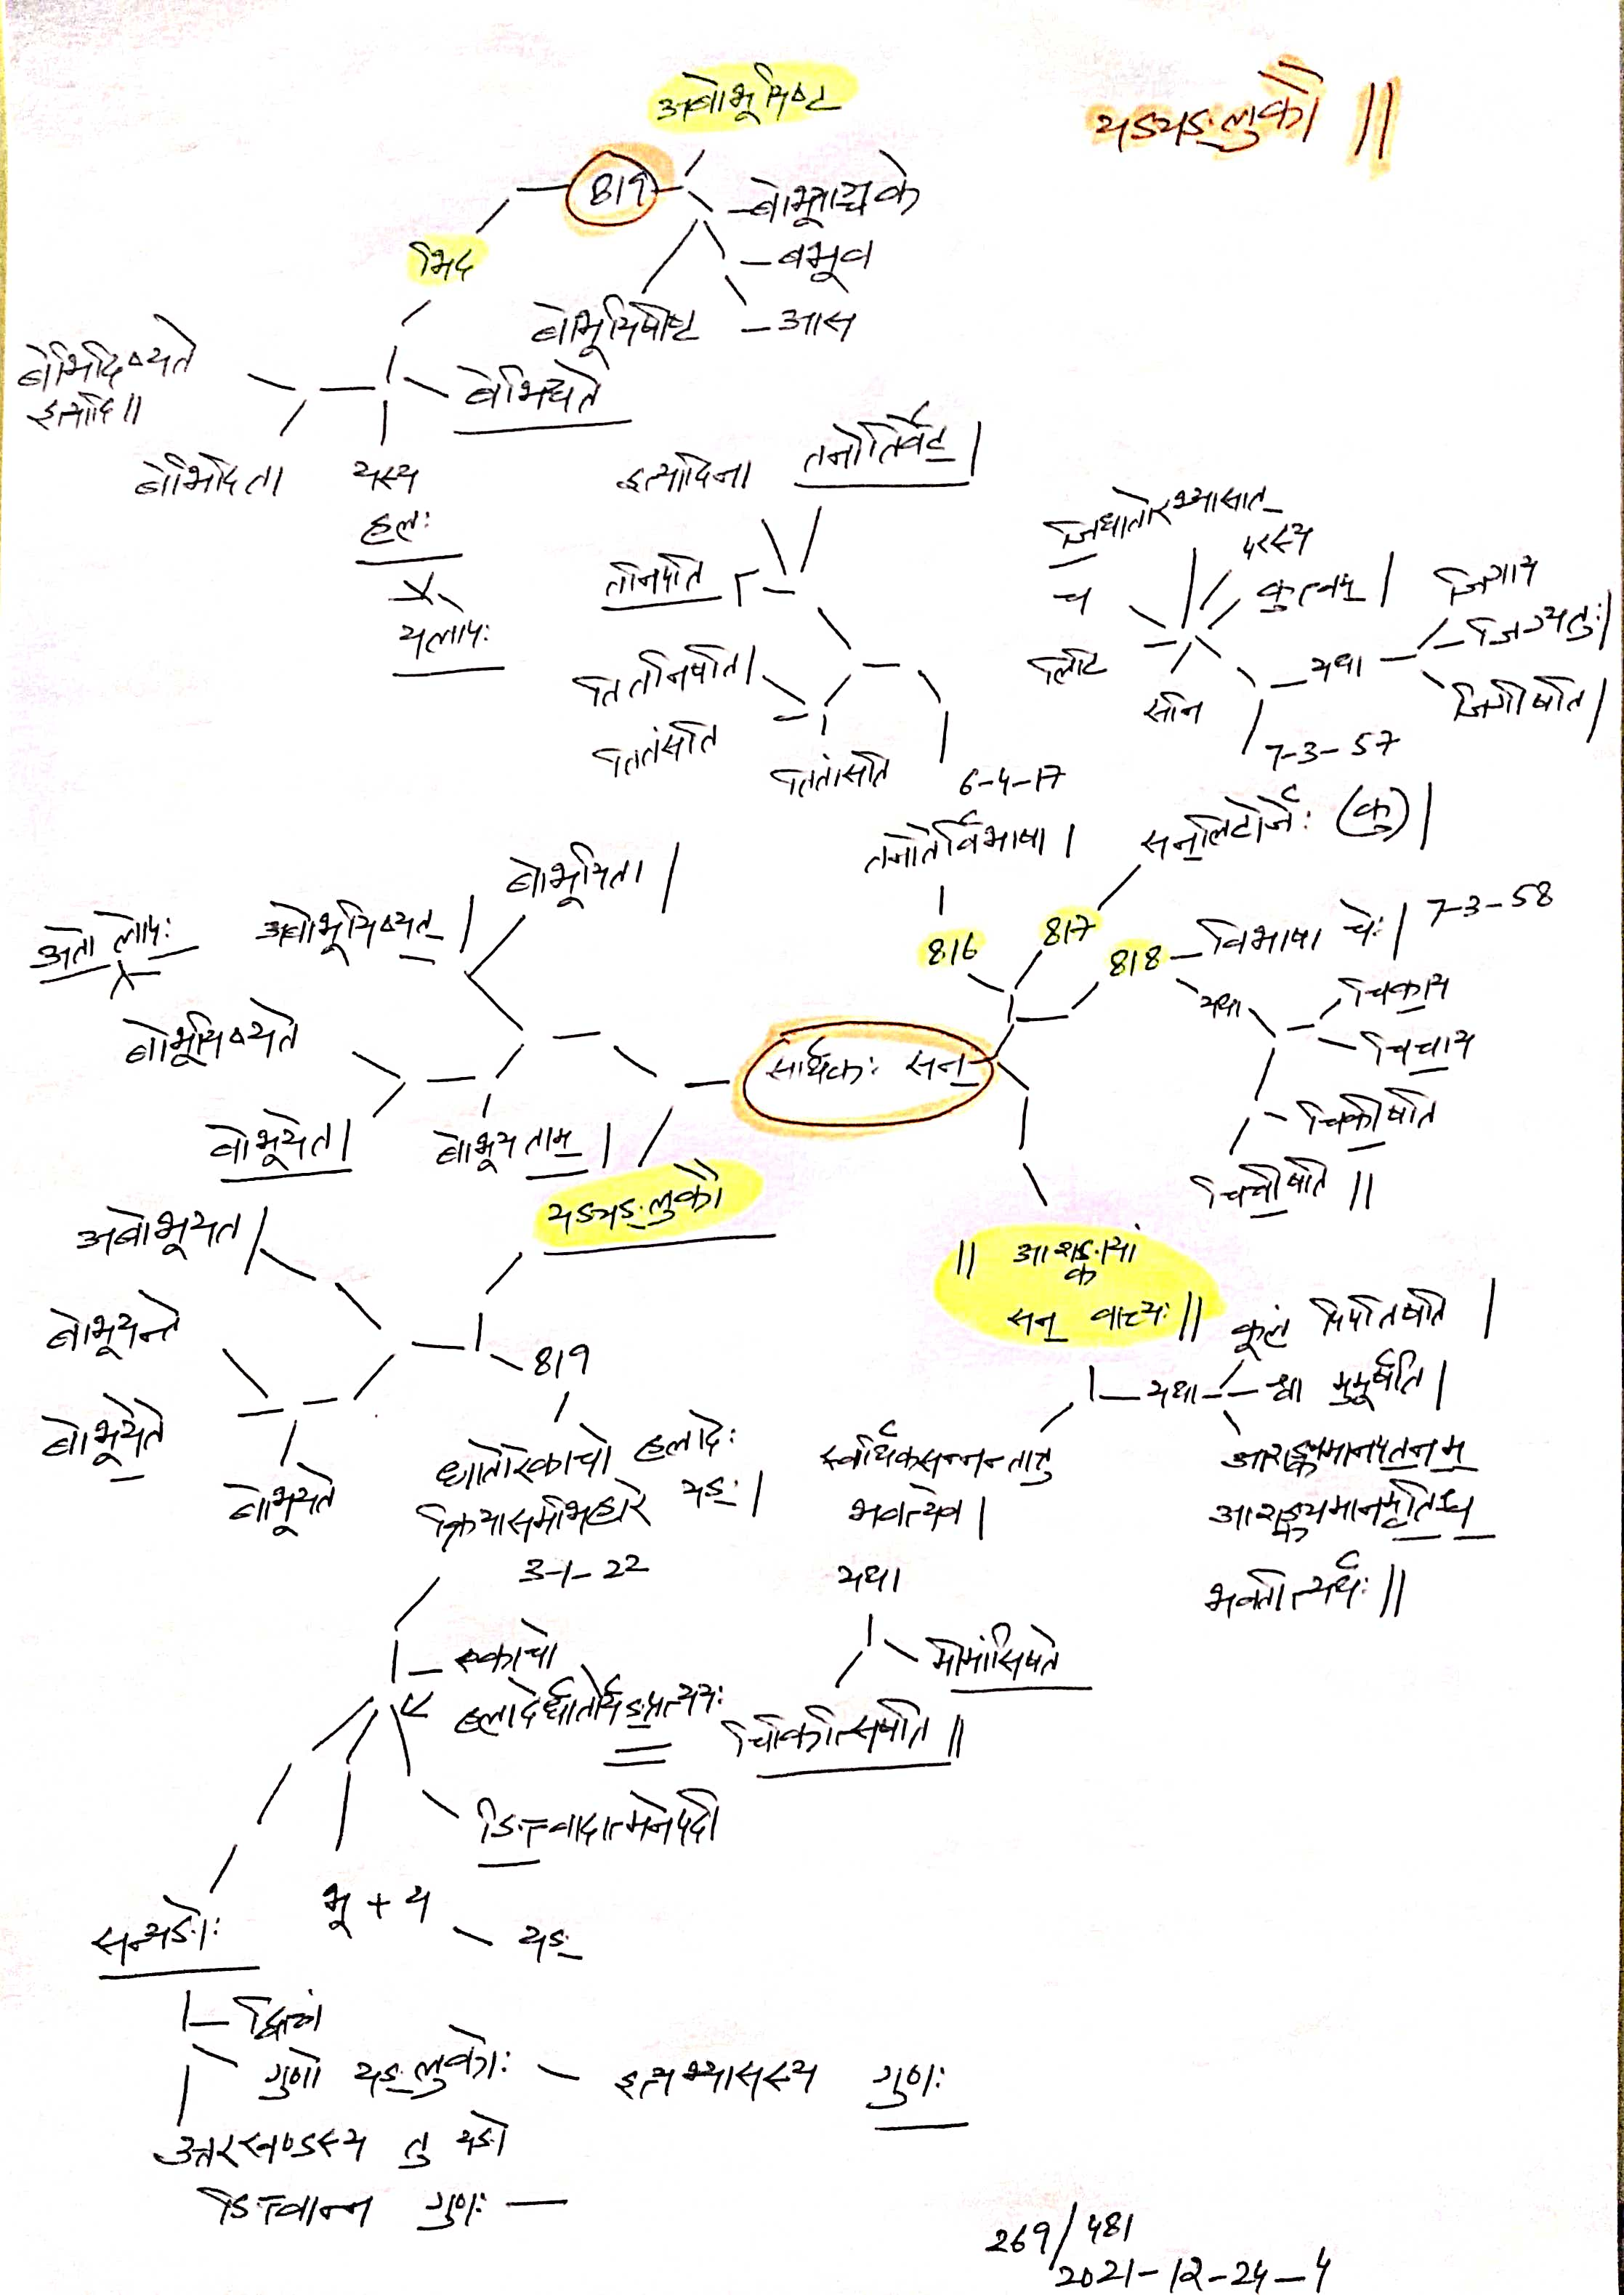 यङ्यङ्लुकौ ||
अबोभूयिष्ट
819
बोभूयाञ्चक्रे
बभूव
आस
बोभूयिषीष्ट
भिद
बेभिद्यते
बेभिदिष्यते
इत्यादि ||
बेभिदिता
यस्य
हलः
यलोपः
इत्यादिना
तनोतेर्वेट् |
तनिपति
तितनिषति |
तितंसति
तितांसति
6-4-17
तनोतेर्विभाषा |
816
जिधातोरभ्यासात्
परस्य
कुत्वम् |
च
लिटि
सनि
यथा
जिगाय
जिग्यतुः |
जिगीषति |
7-3-57
सन्लिटोर्जेः (कु) |
817
818
विभाषा चेः | 7-3-58
यथा
चिकाय
चिचाय
चिकीषति
चिचीषति ||
सार्थकः सन्
बोभूयिता |
अबोभूयिष्यत |
अतो लोपः
बोभूयिष्यते
बोभूयेत |
बोभूयताम् |
यङ्यङ्लुकौ
अबोभूयत |
बोभूयन्ते
बोभूयेते
बोभूयते
819
धातोरेकाचो हलादेः
क्रियासमभिहारे यङ् |
3-1-22
एकाचो
हलादेर्धातोर्यङ्प्रत्ययः
ङित्त्वादात्मनेपदी
भू + य
यङ्
सन्यङोः
द्वित्वं
गुणो यङ्लुकोः
इत्यभ्यासस्य गुणः
उत्तरखण्डस्य तु यङो
ङित्त्वान्न गुणः —
|| आशङ्कायां
सन् वाच्यः ||
यथा
कूलं पिपतिषति |
श्वा मुमूर्षति |
आशङ्क्यमानपतनम्
आशङ्क्यमानमृतिश्च
भवतीत्यर्थः ||
स्वार्थिकसन्नन्तात्तु
भवत्येव |
यथा
मीमांसिषते
चिकित्सिषति ||
269/481
2021-12-24-4